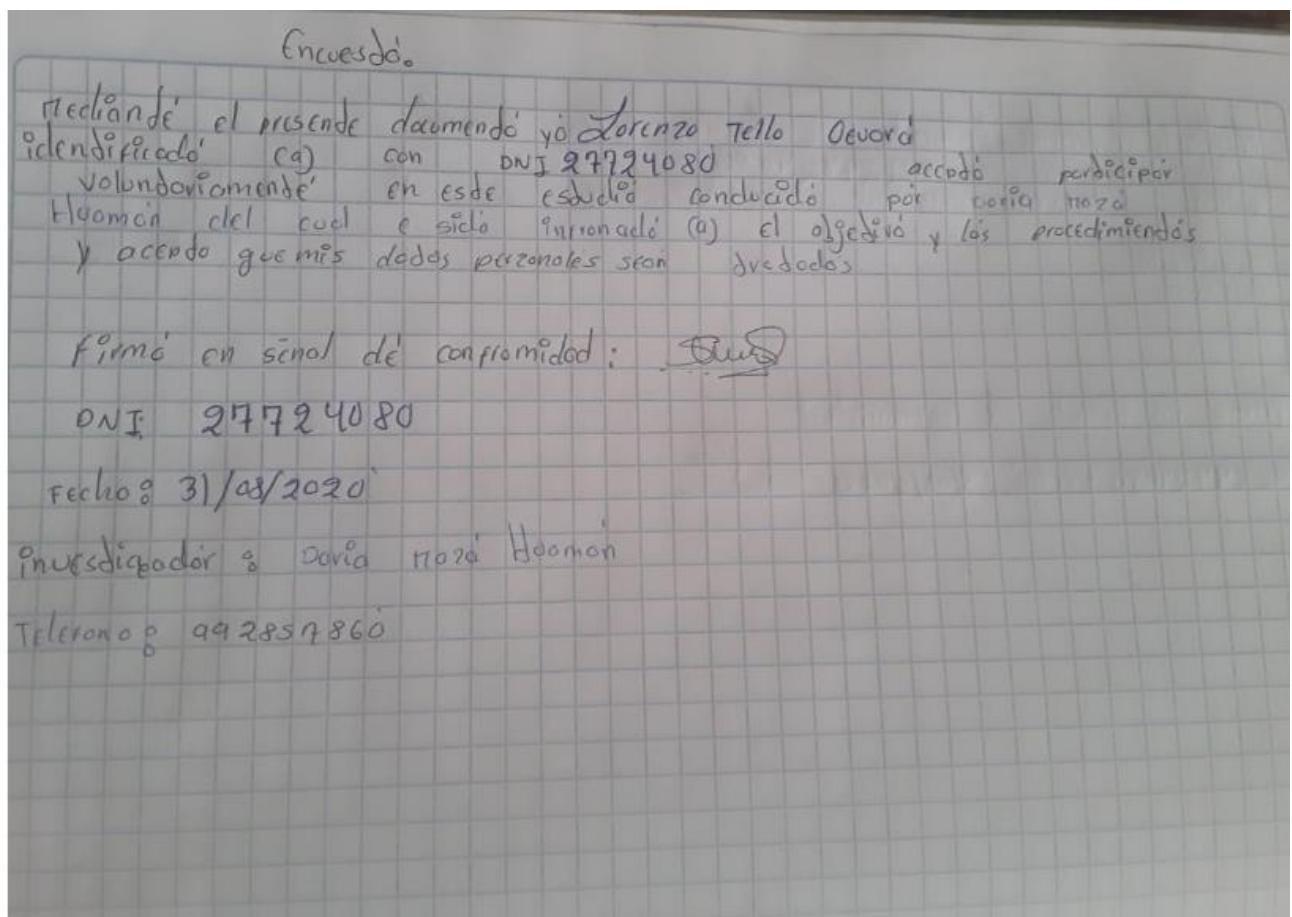 Encuesdó.
mediandé el presende documendó yó Lorenzo Tello Guevara
idendificadó (a) con DNI 27724080 accedó pardicipar
volundariamendé en esde esdudio conducidó por noza
Huamán del cual e sidó inpronadó (a) el objedivó y los procedimiendós
y accedo que mis dados perzonales sean
Firmó en señal dé confromidad:
DNI 27724080
Fecha: 31/08/2020
invesdigador: David nozá Huamán
Telefono: 992857860